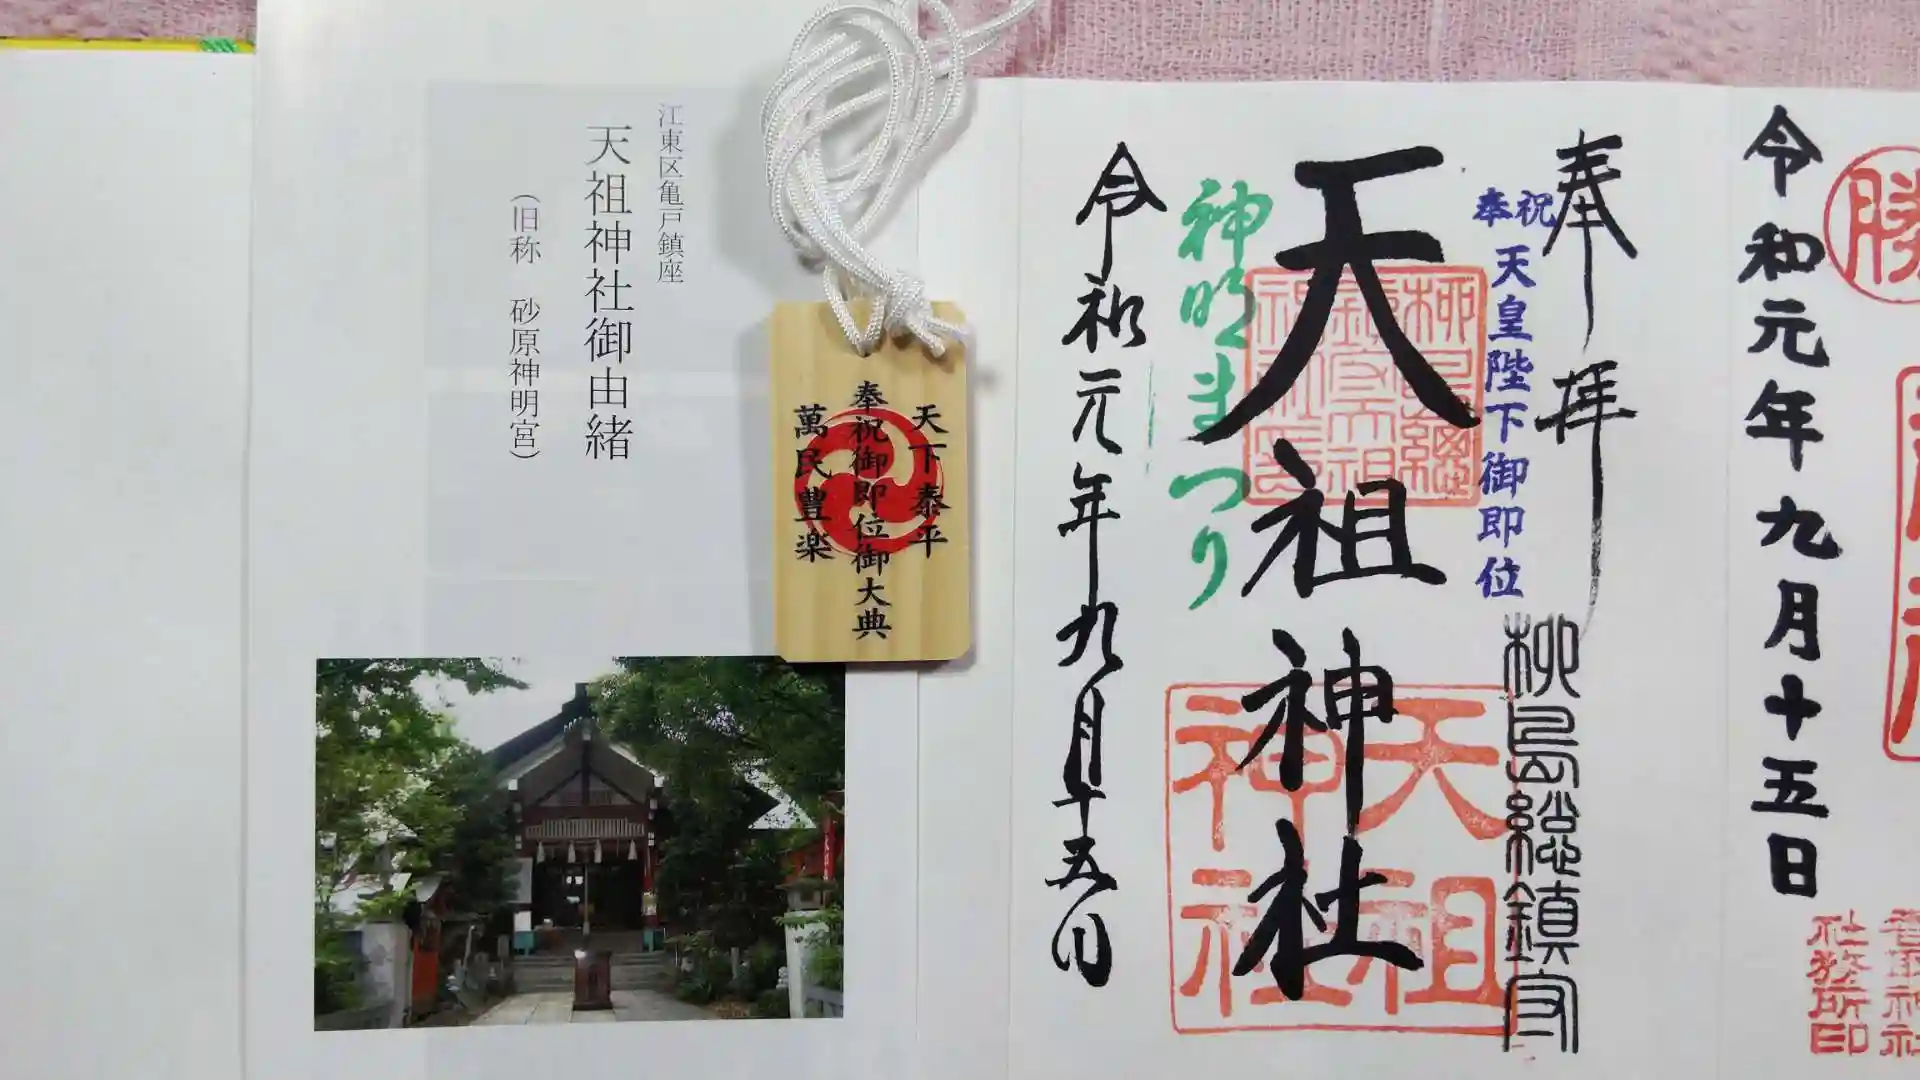 江東区亀戸鎮座
天祖神社御由緒
（旧称　砂原神明宮）
天下泰平
奉祝御即位御大典
萬民豊楽
令和元年九月十五日
社務所印
奉拝
奉祝
天皇陛下御即位
柳島総鎮守
天祖神社
天祖
神社
神明まつり
令和元年九月十五日